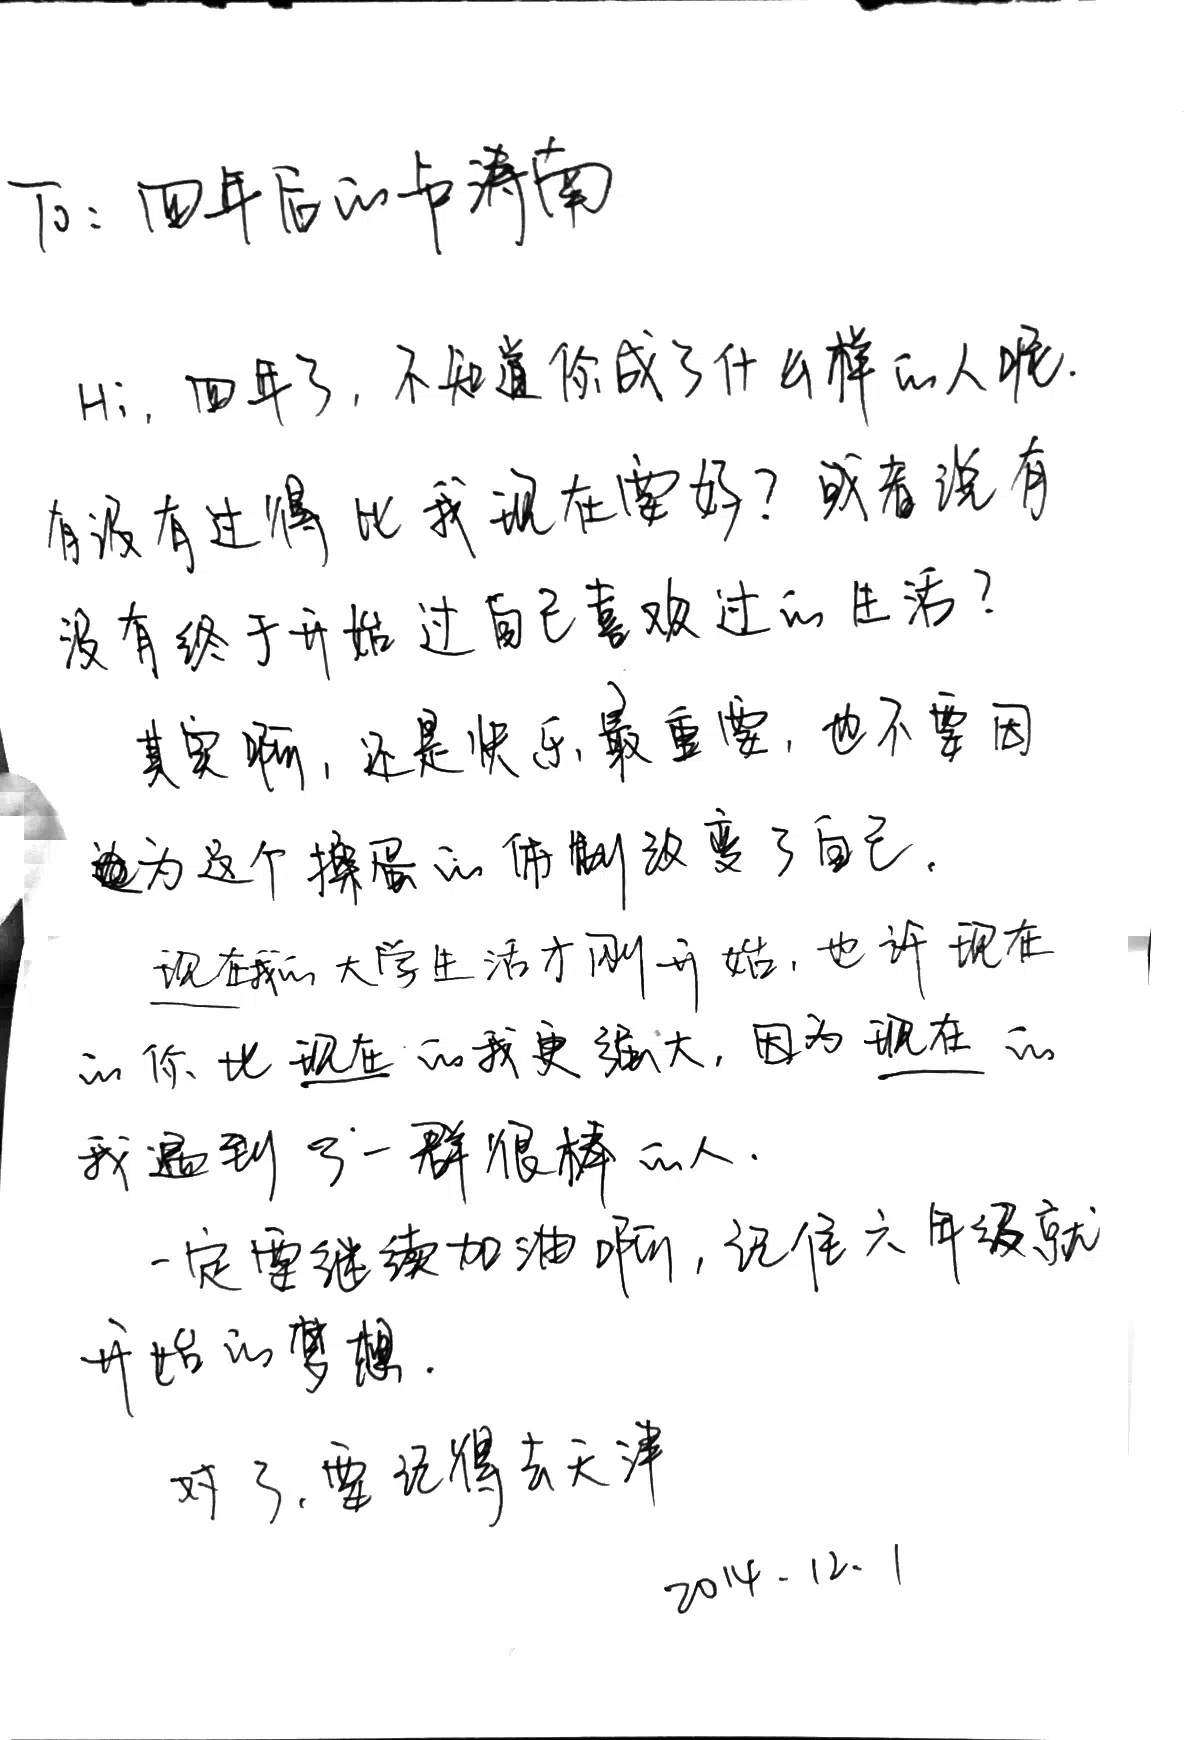 To：四年后的卢涛南
Hi，四年了，不知道你成了什么样的人呢.
有没有过得比我现在要好？或者说有
没有终于开始过自己喜欢过的生活？
其实啊，还是快乐最重要，也不要因
为这个操蛋的体制改变了自己.
现在我的大学生活才刚开始，也许现在
的你比现在的我更强大，因为现在的
我遇到了一群很棒的人.
一定要继续加油啊，记住六年级就
开始的梦想.
对了，要记得去天津
2014.12.1